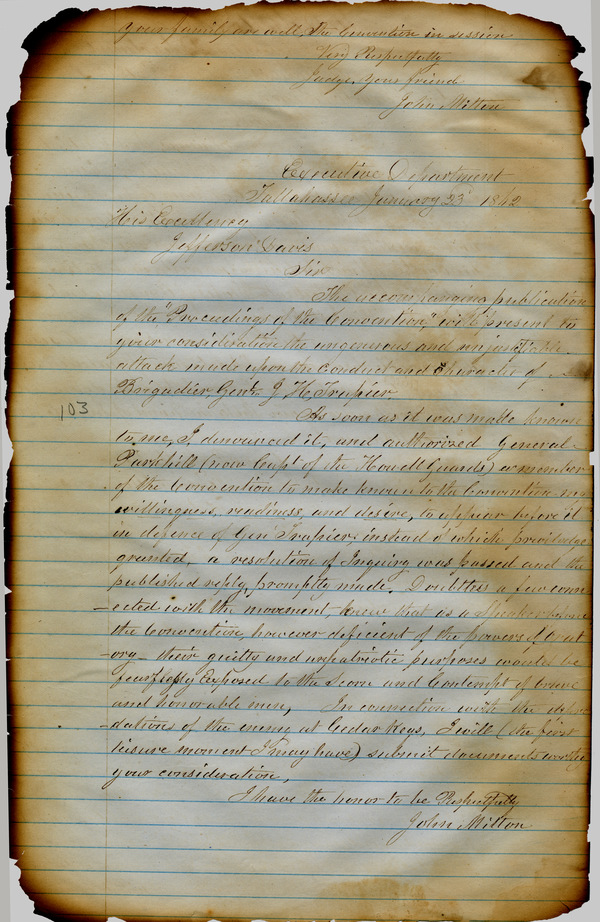 your family are well, The Convention in session
Very Respectfully
Judge, your friend
John Milton
Executive Department
Tallahassee January 23d 1862
His Excellency
Jefferson Davis
Sir
The accompanying publication
of the "Proceedings of the Convention," will present to
your consideration the ungenerous and unjustifiable
attack made upon the conduct and character of
Brigadier Genl. J H Trapier
103
As soon as it was made known
to me, I denounced it, and authorized General
Parkhill (now Capt of the Howell Guards) a member
of the Convention to make known to the Convention my
willingness, readiness and desire, to appear before it
in defence of Gen Trapier instead of which privilege
granted, a resolution of Inquiry was passed and the
published reply, promptly made. Doubtless a few conn
-ected with the movement, knew that as a Speaker before
the Convention, however deficient of the powers of orat
-ory - their guilty and unpatriotic purposes would be
fearfully Exposed to the Scorn and Contempt of brave
and honorable men, In connection with the depre
-dations of the enemy at Cedar Keys, I will (the first
leisure moment I may have) submit documents worthy
your consideration,
I have the honor to be Respectfully
John Milton